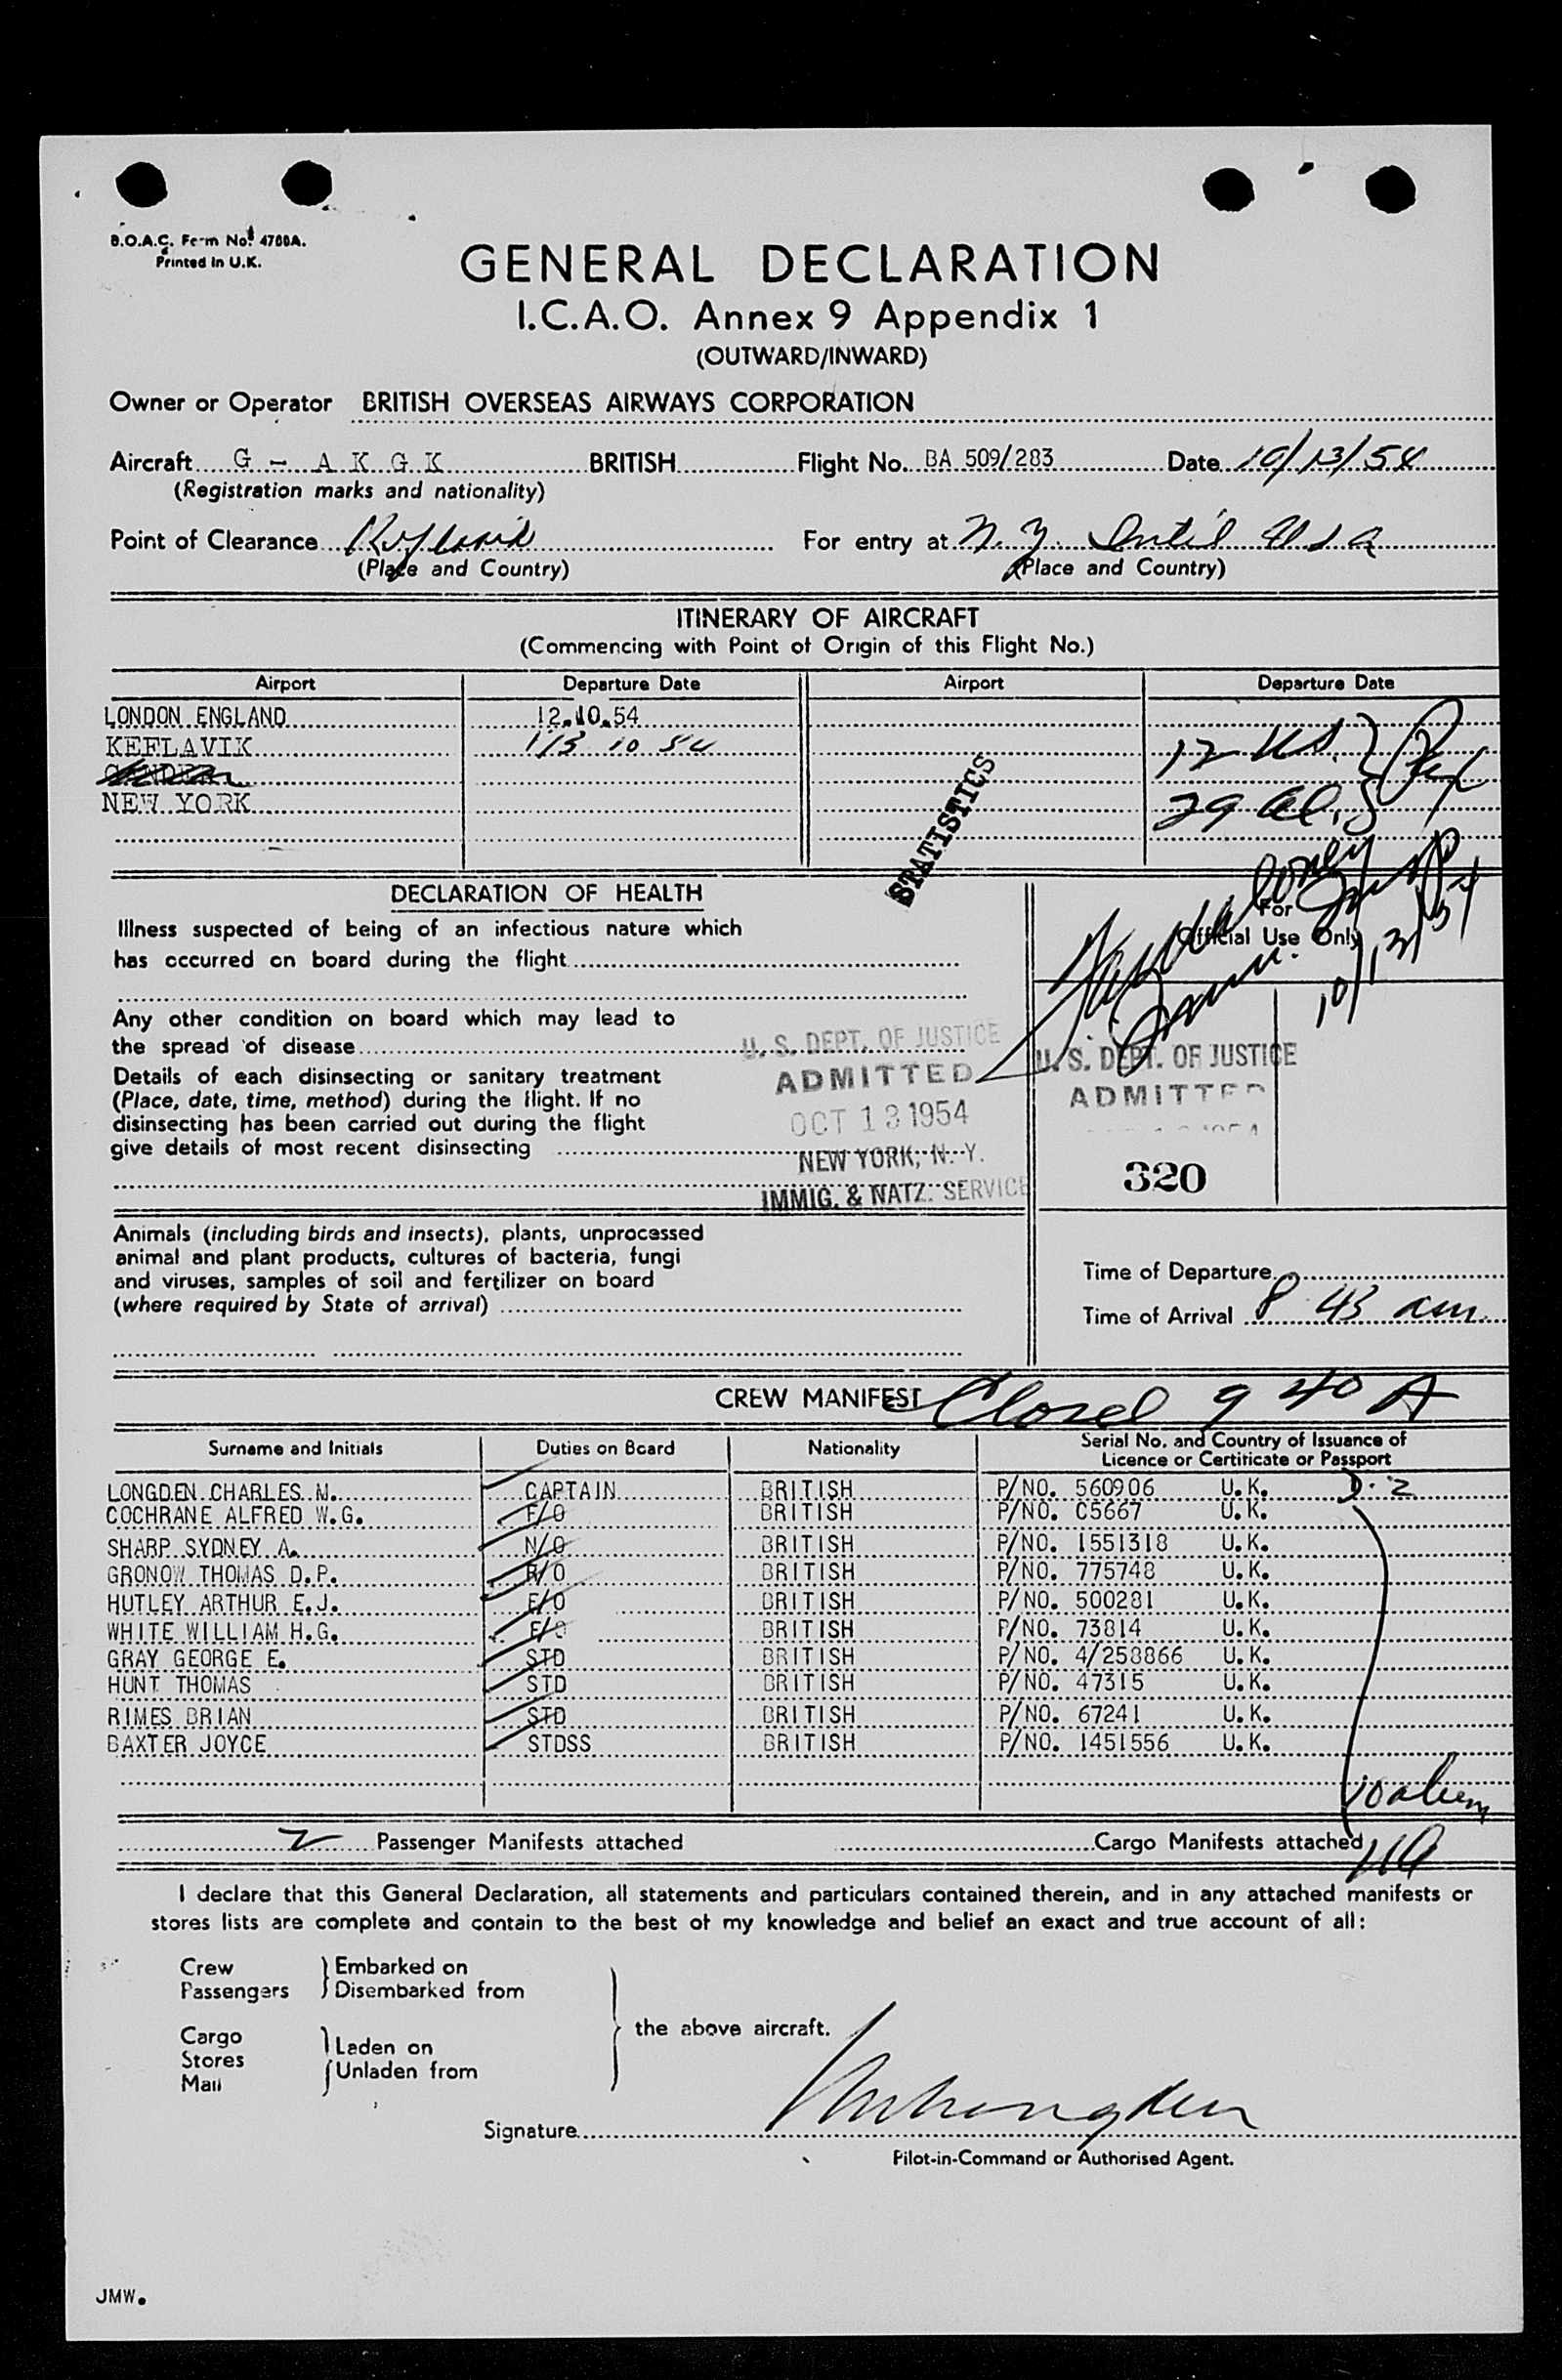 B.O.A.C. Form No. 4700A.
Printed in U.K.
GENERAL DECLARATION
I.C.A.O. Annex 9 Appendix 1
(OUTWARD/INWARD)
Owner or Operator BRITISH OVERSEAS AIRWAYS CORPORATION
Aircraft G - A K G K BRITISH Flight No. BA 509/283 Date 10/13/54
(Registration marks and nationality)
Point of Clearance For entry at N.Y. Int'l USA
(Place and Country) (Place and Country)
ITINERARY OF AIRCRAFT
(Commencing with Point of Origin of this Flight No.)
Airport Departure Date Airport Departure Date
LONDON ENGLAND 12.10.54
KEFLAVIK 13 10 54 12 US
GANDER
NEW YORK 29 al.
STATISTICS
DECLARATION OF HEALTH
Illness suspected of being of an infectious nature which
has occurred on board during the flight
For
Official Use Only
10/13/54
Any other condition on board which may lead to
the spread of disease
Details of each disinsecting or sanitary treatment
(Place, date, time, method) during the flight. If no
disinsecting has been carried out during the flight
give details of most recent disinsecting
U. S. DEPT. OF JUSTICE
ADMITTED
OCT 13 1954
NEW YORK, N. Y.
IMMIG. & NATZ. SERVICE
U. S. DEPT. OF JUSTICE
ADMITTED
320
Animals (including birds and insects), plants, unprocessed
animal and plant products, cultures of bacteria, fungi
and viruses, samples of soil and fertilizer on board
(where required by State of arrival)
Time of Departure
Time of Arrival 8 43 am
CREW MANIFEST Closed 9 40 A
Surname and Initials Duties on Board Nationality Serial No. and Country of Issuance of
Licence or Certificate or Passport
LONGDEN CHARLES M. CAPTAIN BRITISH P/NO. 560906 U.K. D-2
COCHRANE ALFRED W.G. F/O BRITISH P/NO. C5667 U.K.
SHARP SYDNEY A. N/O BRITISH P/NO. 1551318 U.K.
GRONOW THOMAS D.P. R/O BRITISH P/NO. 775748 U.K.
HUTLEY ARTHUR E.J. E/O BRITISH P/NO. 500281 U.K.
WHITE WILLIAM H.G. E/O BRITISH P/NO. 73814 U.K.
GRAY GEORGE E. STD BRITISH P/NO. 4/258866 U.K.
HUNT THOMAS STD BRITISH P/NO. 47315 U.K.
RIMES BRIAN STD BRITISH P/NO. 67241 U.K.
BAXTER JOYCE STDSS BRITISH P/NO. 1451556 U.K.
10 alien
2 Passenger Manifests attached Cargo Manifests attached
I declare that this General Declaration, all statements and particulars contained therein, and in any attached manifests or
stores lists are complete and contain to the best of my knowledge and belief an exact and true account of all:
Crew Embarked on
Passengers Disembarked from
the above aircraft.
Cargo Laden on
Stores Unladen from
Mail
Signature CMLongden
Pilot-in-Command or Authorised Agent.
JMW.